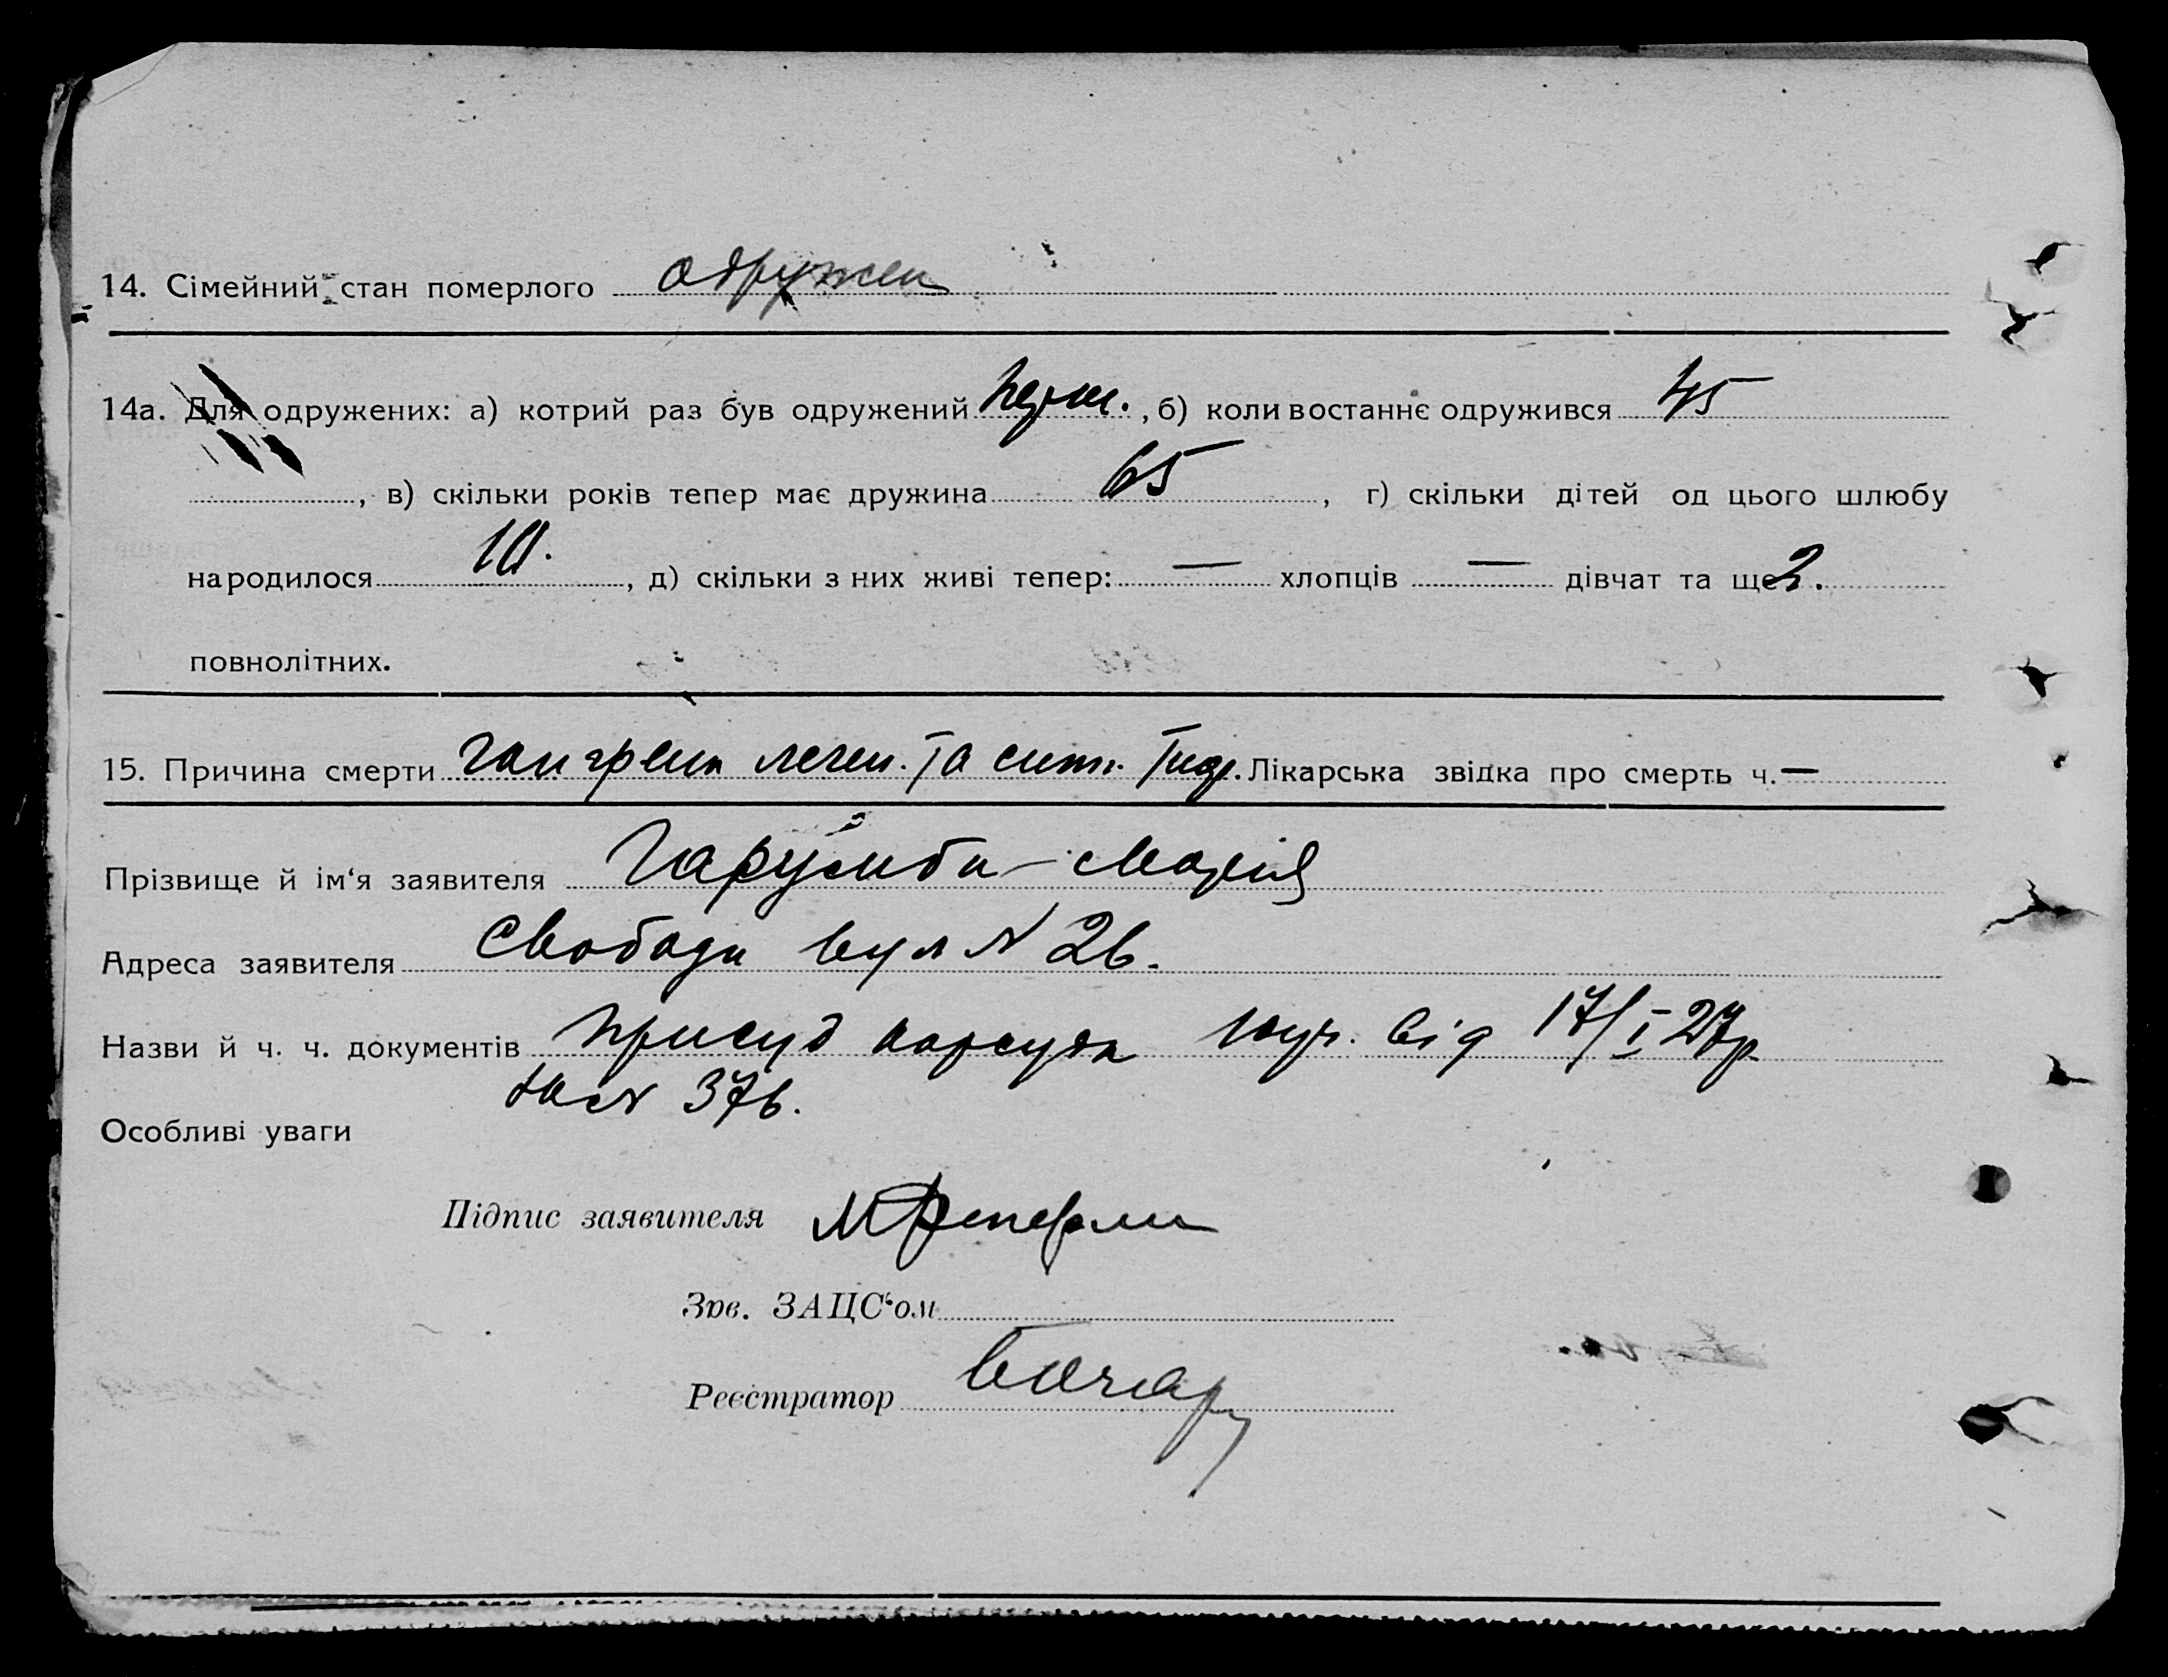 14. Сімейний стан померлого одружен
14а. Для одружених: а) котрий раз був одружений перш. , б) коли востаннє одружився 45
, в) скільки років тепер має дружина 65 , г) скільки дітей од цього шлюбу
народилося 10. , д) скільки з них живі тепер: — хлопців — дівчат та ще 2.
повнолітних.
15. Причина смерти гангрена леген. та Лікарська звідка про смерть ч. —
Прізвище й ім‘я заявителя Марія
Адреса заявителя Свободи вул N 26.
Назви й ч. ч. документів присуд нарсуда від 17/I 27р
376.
Особливі уваги
Підпис заявителя
Зав. ЗАЦС‘ом
Реєстратор Бочар